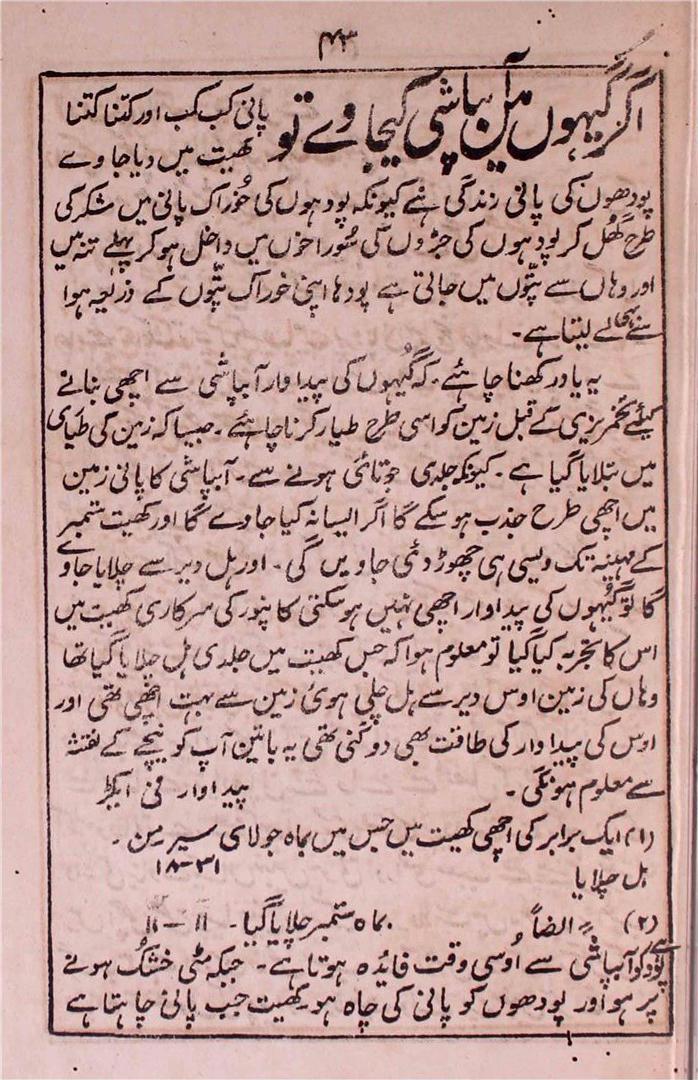 ۴۳
اگر گیہوں میں آبپاشی کیجاوے تو
پانی کب کب اور کتنا کتنا
کھیت میں دیا جاوے
پودھوں کی پانی زندگی ہے کیونکہ پودہوں کی خُوراک پانی میں شکر کی
طرح گھُل کر پودہوں کی جڑوں کی سُوراخوں میں داخل ہو کر پہلے تنہ میں
اور وہاں سے پتّوں میں جاتی ہے پودہا اپنی خوراک پتّوں کے ذریعہ ہوا
سے بھی لے لیتا ہے۔
یہ یاد رکھنا چاہئے۔ کہ گیُہوں کی پیداوار آبپاشی سے اچھی بنانے
کیلئے تخمریزی کے قبل زمین کو اسی طرح طیار کرنا چاہئے۔ جیسا کہ زمین کی طیاری
میں بتلایا گیا ہے۔ کیونکہ جلدی جوتائی ہونے سے۔ آبپاشی کا پانی زمین
میں اچھی طرح جذب ہو سکے گا اگر ایسا نہ کیا جاوے گا اور کھیت ستمبر
کے مہینہ تک ویسی ہی چھوڑ دئی جاویں گی۔ اور ہل دیر سے چلایا جاوے
گا تو گیہُوں کی پیداوار اچھی نہیں ہو سکتی کانپور کی سرکاری کھیت میں
اس کا تجربہ کیا گیا تو معلوم ہوا کہ جس کھیت میں جلدی ہل چلایا گیا تھا
وہاں کی زمین اوس دیر سے ہل چلی ہوئ زمین سے بہت اچھی تھی اور
اوس کی پیداوار کی طاقت بھی دو گنی تھی یہ باتین آپ کو نیچے کے نقشہ
سے معلوم ہونگی۔ پیداوار فی ایکڑ
(۱) ایک برابر کی اچھی کھیت میں جس میں بماہ جولای سیر من۔
ہل چلایا ۳۱-۱۸
(۲) ؍؍ ایضاً بماہ ستمبر چلایا گیا۔ ۱۱ – ۱۱
پود کو آبپاشی سے اُوسی وقت فائدہ ہوتا ہے۔ جبکہ مٹی خشک ہونے
پر ہو اور پودھوں کو پانی کی چاہ ہو۔ کھیت جب پانی چاہتا ہے